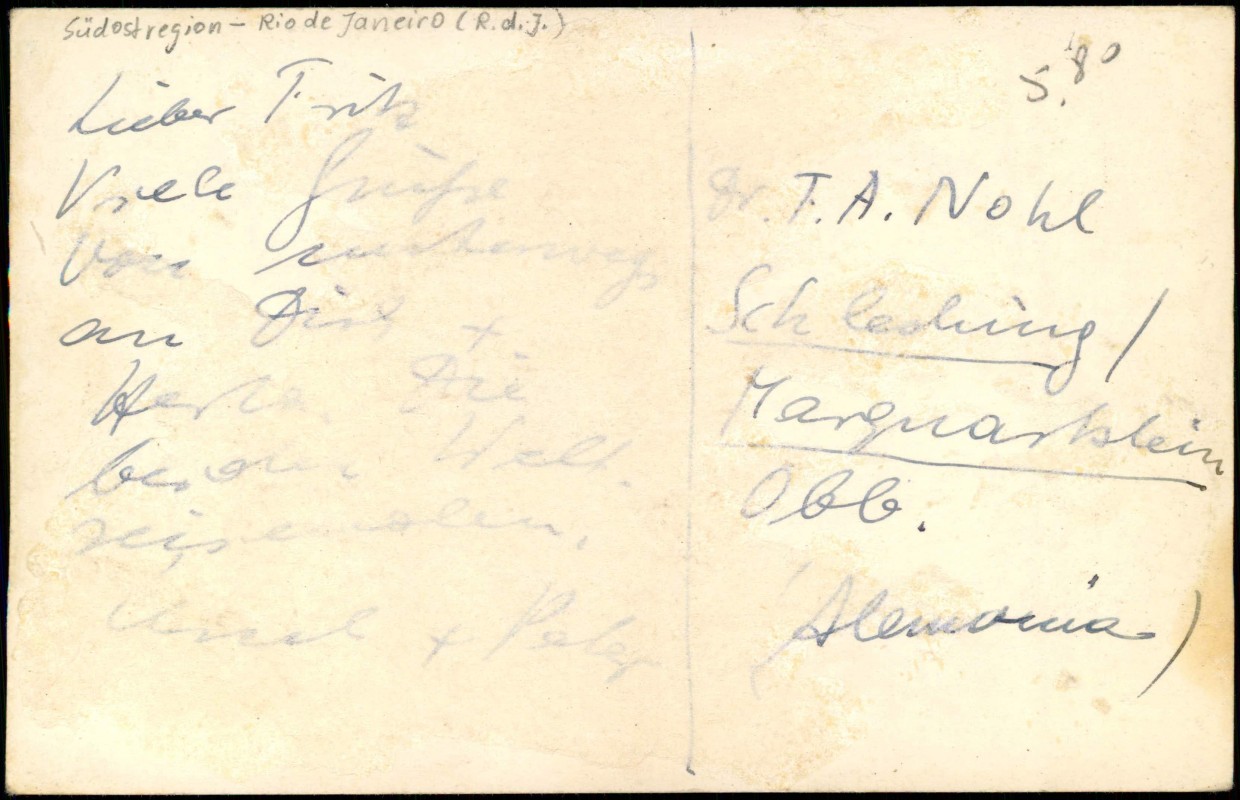 Südostregion – Rio de Janeiro (R.d.J.)
5.80
Lieber Fritz
Viele Grüße
von unterwegs
an Dich +
Herta. Die
beiden Welt-
reisenden,
Ursel + Peter
Dr. F. A. Nohl
Schleching/
Marquartstein
Obb.
(Alemania)